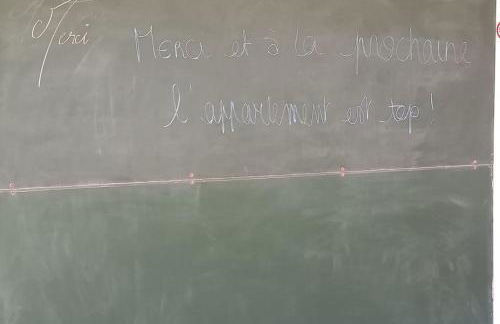 Merci
Merci et à la prochaine
l'appartement est top!